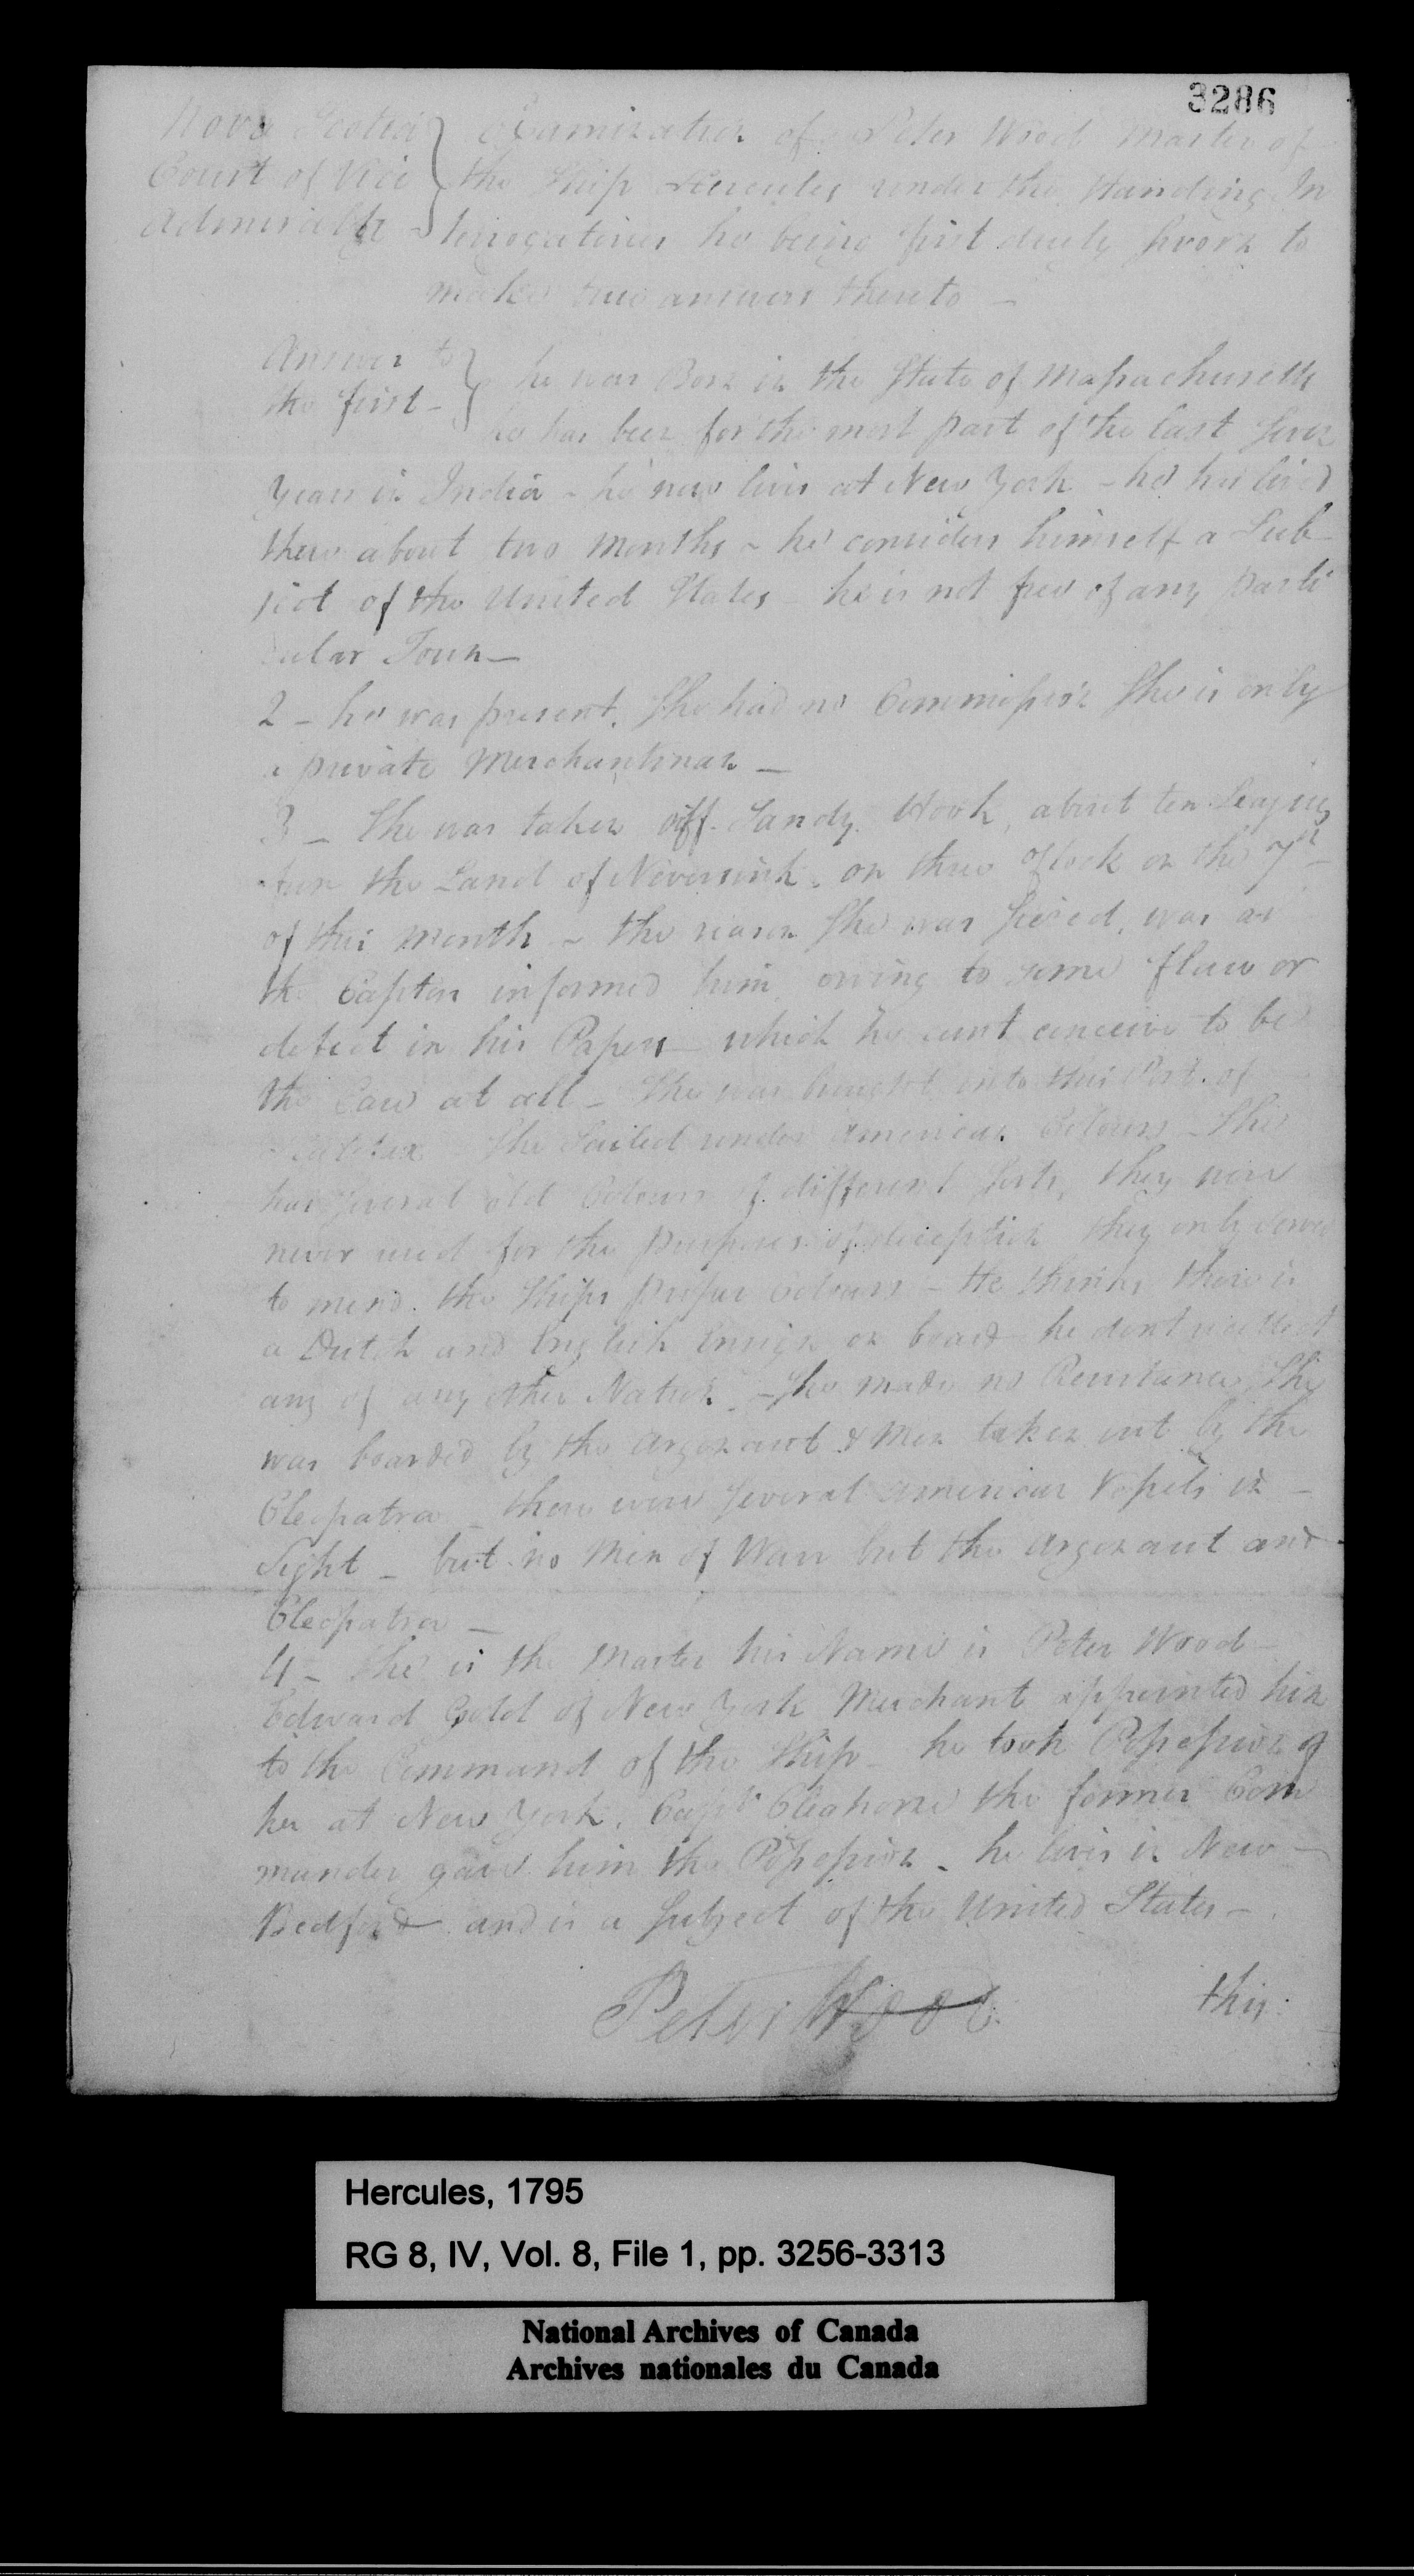 3286
Nova Scotia } Examination of Peter Wood Master of
Court of Vice } the Ship Hercules under the Standing In
Admiralty } terrogatories he being first duely sworn to
make true answers thereto —
Answer to } he was Born in the State of Massachusetts
the first — } he has been for the most part of the last seven
years in India - he now lives at New York - he has lived
there about two Months - he considers himself a Sub
ject of the United States he is not free of any parti
cular Town —
2 - he was present. She had no Commission She is only
a private Merchantman —
3 - She was taken off Sandy Hook, about ten Leagues
from the Land of Neversink. on three oClock on the 7th
of this Month - the reason She was seized, was as
the Captain informed him owing to some flaw or
defect in his Papers - which he cant conceive to be
the Case at all - She was brought into this Port of
Halifax She Sailed under American Colours - She
has several old Colours of different sorts, they were
never used for the purposes of deception they only served
to mend the Ships proper Colours - He thinks there is
a Dutch and English Ensign on board he dont recollect
any of any other Nation - She made no Resistance, She
was boarded by the Argonaut & Men taken out by the
Cleopatra - there were several American Vessels in -
Sight - but no Men of Warr but the Argonaut and
Cleopatra —
4 - he is the Master his Name is Peter Wood -
Edward Gold of New York Merchant appointed him
to the Command of the Ship - he took Possession of
her at New York. Capt. Cleghorne the former Com
mander gave him the Possession - he lives in New -
Bedford and is a Subject of the United States -
Peter Wood this
Hercules, 1795
RG 8, IV, Vol. 8, File 1, pp. 3256-3313
National Archives of Canada
Archives nationales du Canada